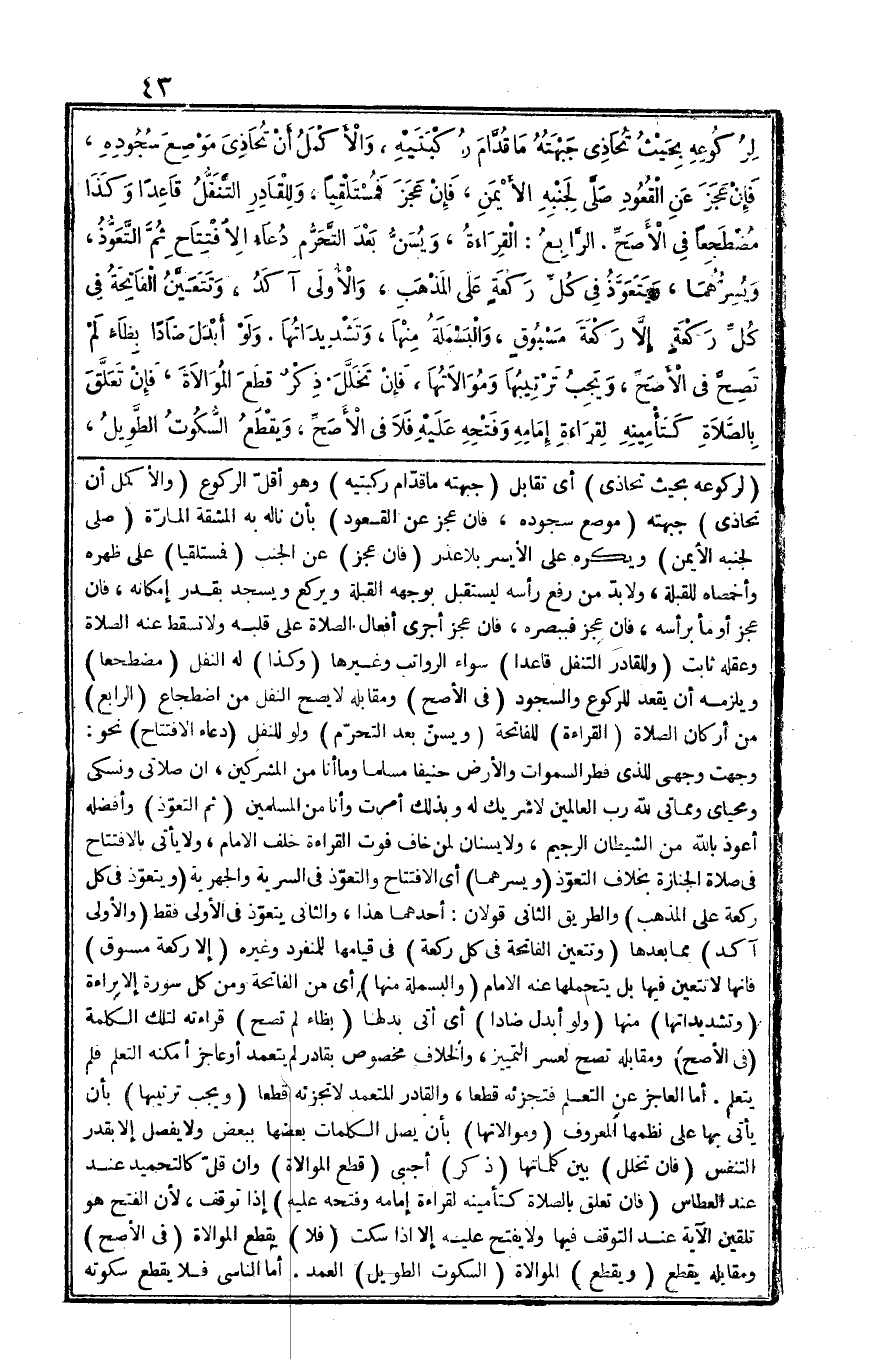 ٤٣
لِرُكُوعِهِ بِحَيْثُ تُحَاذِى جَبْهَتُهُ مَا قُدَّامَ رُكْبَتَيْهِ ، وَالْأَكْمَلُ أَنْ تُحَاذِىَ مَوْضِعَ سُجُودِهِ ،
فَإِنْ عَجَزَ عَنِ الْقُعُودِ صَلَّى لِجَنْبِهِ الأَيْمَنِ ، فَإِنْ عَجَزَ فَمُسْتَلْقِياً ، وَلِلْقَادِرِ التَّنَفُّلُ قَاعِدًا وَكَذَا
مُضْطَجِعاً فِى الْأَصَحِّ . الرَّابِعُ : الْقِرَاءَةُ ، وَيُسَنُّ بَعْدَ التَّحَرُّمِ دُعَاءُ الِافْتِتَاحِ ثُمَّ التَّعَوُّذُ ،
وَيُسِرُّهُمَا ، وَيَتَعَوَّذُ فِى كُلِّ رَكْعَةٍ عَلَى الْمَذْهَبِ ، وَالْأُولَى آكَدُ ، وَتَتَعَيَّنُ الْفَاتِحَةُ فِى
كُلِّ رَكْعَةٍ إِلَّا رَكْعَةَ مَسْبُوقٍ ، وَالْبَسْمَلَةُ مِنْهَا ، وَتَشْدِيدَاتُهَا . وَلَوْ أَبْدَلَ ضَادًا بِظَاءٍ لَمْ
تَصِحَّ فِى الْأَصَحِّ ، وَيَجِبُ تَرْتِيبُهَا وَمُوَالَاتُهَا ، فَإِنْ تَخَلَّلَ ذِكْرٌ قَطَعَ الْمُوَالَاةَ ، فَإِنْ تَعَلَّقَ
بِالصَّلَاةِ كَتَأْمِينِهِ لِقِرَاءَةِ إِمَامِهِ وَفَتْحِهِ عَلَيْهِ فَلَا فِى الْأَصَحِّ ، وَيَقْطَعُ السُّكُوتُ الطَّوِيلُ ،
(لركوعه بحيث تحاذى) أى تقابل (جبهته ماقدّام ركبتيه) وهو أقلّ الركوع (والأكمل أن
تحاذى) جبهته (موضع سجوده ، فان عجز عن القعود) بأن ناله به المشقة المارّة (صلى
لجنبه الأيمن) ويكره على الأيسر بلاعذر (فان عجز) عن الجنب (فستلقيا) على ظهره
وأخمصاه للقبلة ، ولابدّ من رفع رأسه ليستقبل بوجهه القبلة ويركع ويسجد بقدر إمكانه ، فان
عجز أومأ برأسه ، فان عجز فببصره ، فان عجز أجرى أفعال الصلاة على قلبه ولاتسقط عنه الصلاة
وعقله ثابت (وللقادر التنفل قاعدا) سواء الرواتب وغيرها (وكذا) له النفل (مضطجعا)
ويلزمه أن يقعد للركوع والسجود (فى الأصح) ومقابله لايصح النفل من اضطجاع (الرابع)
من أركان الصلاة (القراءة) للفاتحة (ويسنّ بعد التحرّم) ولو للنفل (دعاء الافتتاح) نحو :
وجهت وجهى للذى فطر السموات والأرض حنيفا مسلما وماأنا من المشركين ، ان صلاتى ونسكى
ومحياى ومماتى لله رب العالمين لاشريك له وبذلك أمرت وأنا من المسلمين (ثم التعوّذ) وأفضله
أعوذ بالله من الشيطان الرجيم ، ولايسنان لمن خاف فوت القراءة خلف الامام ، ولايأتى بالافتتاح
فى صلاة الجنازة بخلاف التعوّذ (ويسرهما) أى الافتتاح والتعوّذ فى السرية والجهرية (ويتعوّذ فى كل
ركعة على المذهب) والطريق الثانى قولان : أحدهما هذا ، والثانى يتعوّذ فى الأولى فقط (والأولى
آكد) مما بعدها (وتتعين الفاتحة فى كل ركعة) فى قيامها للمنفرد وغيره (إلا ركعة مسبوق)
فانها لاتتعين فيها بل يتحملها عنه الامام (والبسملة منها) أى من الفاتحة ومن كل سورة إلا براءة
(وتشديداتها) منها (ولو أبدل ضادا) أى أتى بدلها (بظاء لم تصح) قراءته لتلك الكلمة
(فى الأصح) ومقابله تصح لعسر التمييز ، والخلاف مخصوص بقادر لم يتعمد أوعاجز أمكنه التعلم فلم
يتعلم . أما العاجز عن التعلم فتجزئه قطعا ، والقادر المتعمد لاتجزئه قطعا (ويجب ترتيبها) بأن
يأتى بها على نظمها المعروف (وموالاتها) بأن يصل الكلمات بعضها ببعض ولايفصل إلا بقدر
التنفس (فان تخلل) بين كلماتها (ذكر) أجنبى (قطع الموالاة) وان قلّ كالتحميد عند
عند العطاس (فان تعلق بالصلاة كتأمينه لقراءة إمامه وفتحه عليه) إذا توقف ، لأن الفتح هو
تلقين الآية عند التوقف فيها ولايفتح عليه إلا اذا سكت (فلا) يقطع الموالاة (فى الأصح)
ومقابله يقطع (ويقطع) الموالاة (السكوت الطويل) العمد . أما الناسى فلا يقطع سكوته